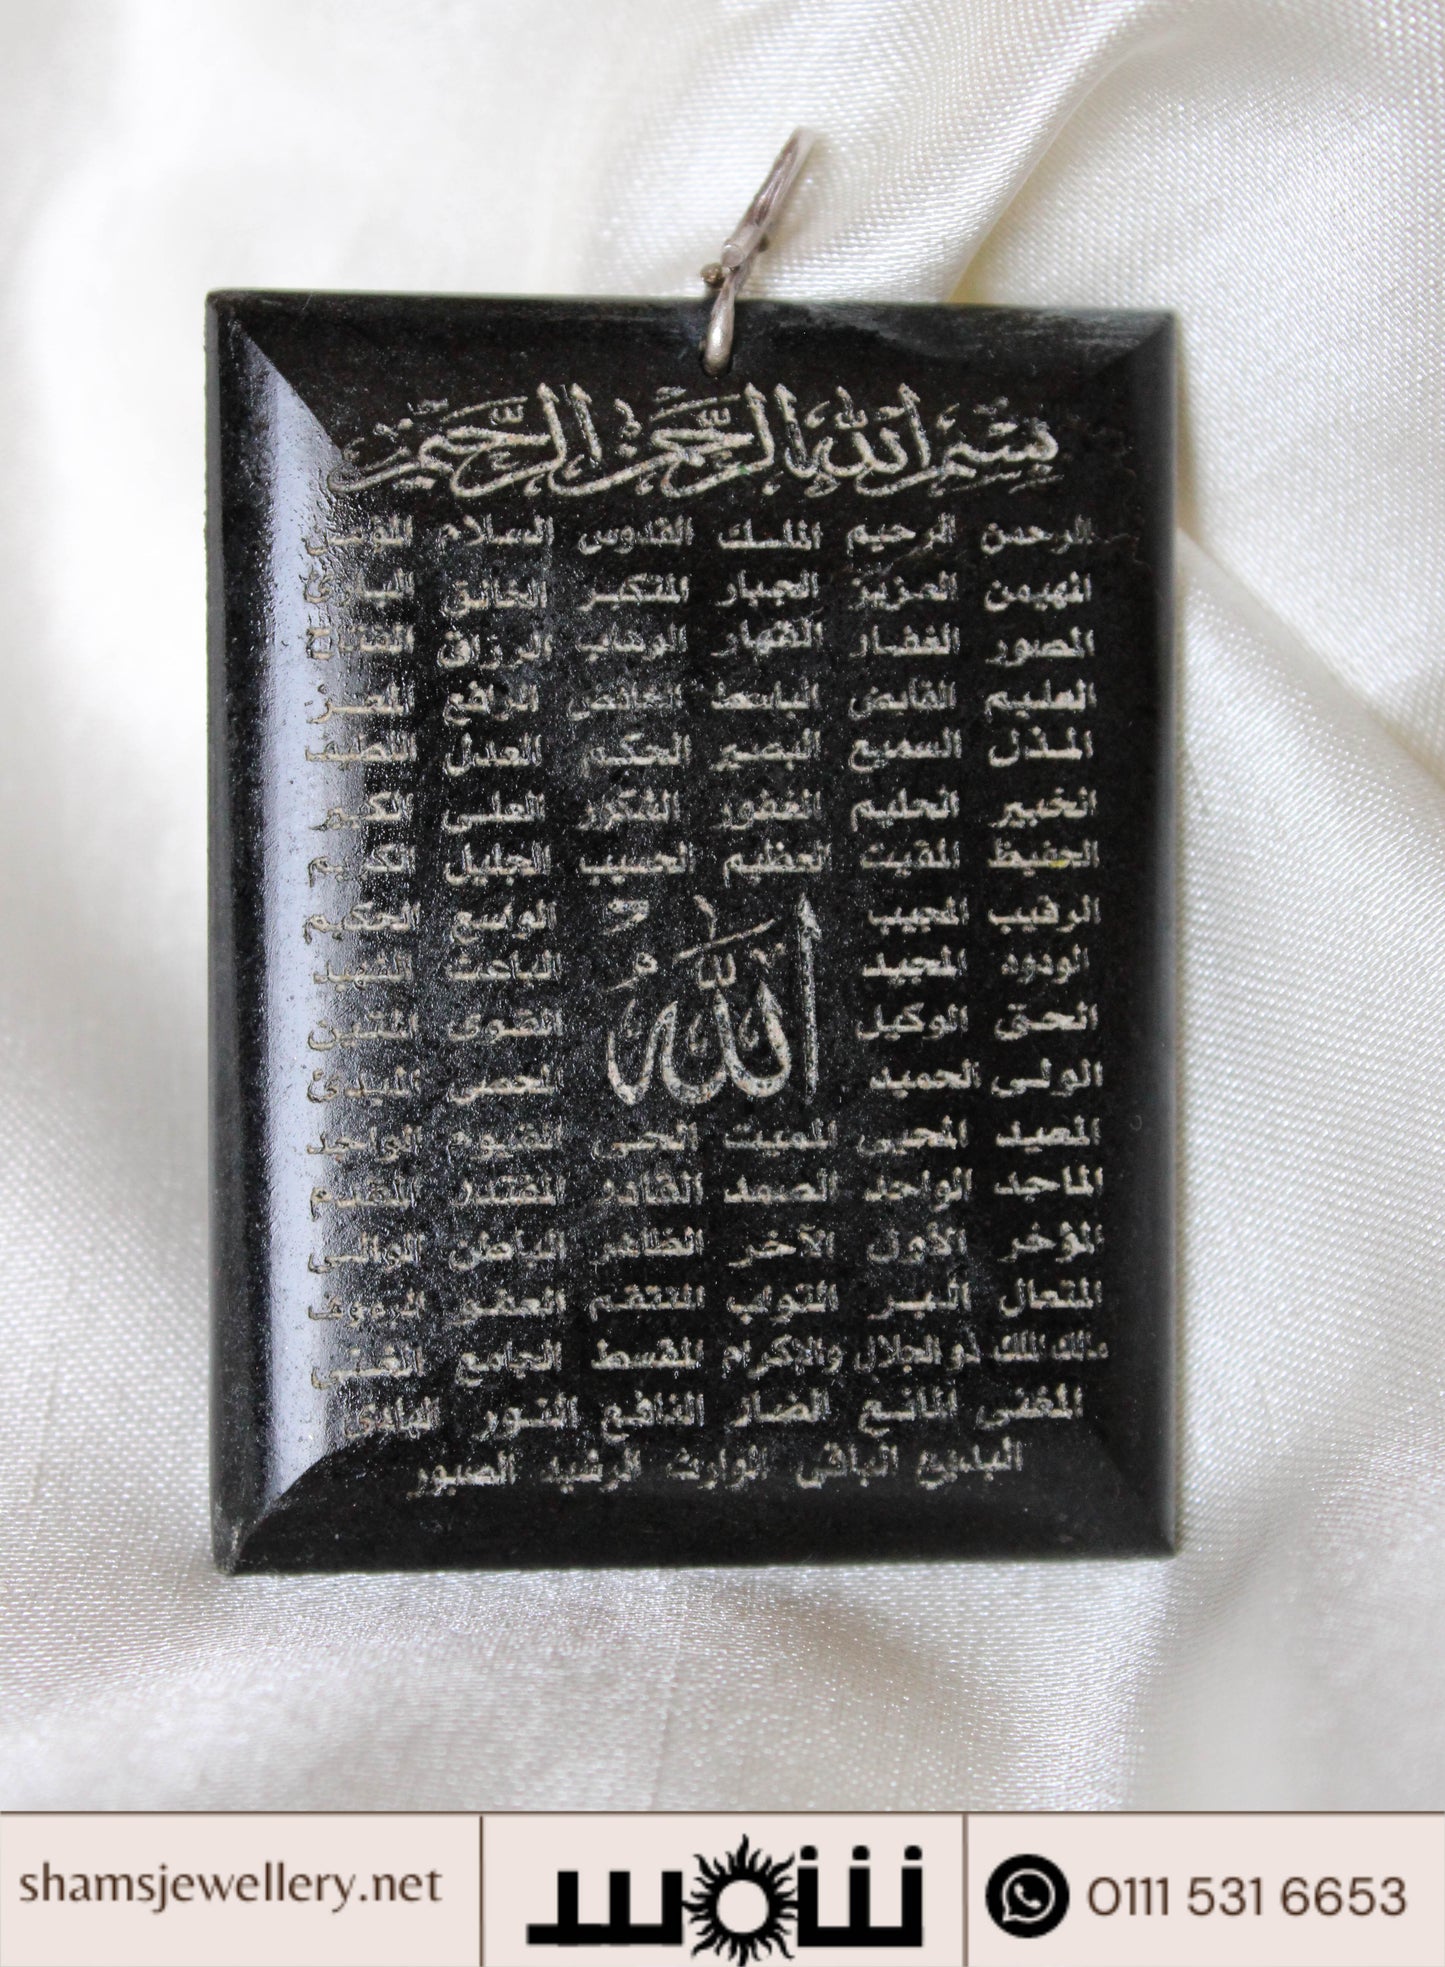 بِسْمِ اللهِ الرَّحْمٰنِ الرَّحِيمِ
الرحمن الرحيم الملك القدوس السلام المؤمن
المهيمن العزيز الجبار المتكبر الخالق البارئ
المصور الغفار القهار الوهاب الرزاق الفتاح
العليم القابض الباسط الخافض الرافع المعز
المذل السميع البصير الحكم العدل اللطيف
الخبير الحليم الغفور الشكور العلى الكبير
الحفيظ المقيت العظيم الحسيب الجليل الكريم
الرقيب المجيب الواسع الحكيم
الودود المجيد الباعث الشهيد
الحق الوكيل القوى المتين
الولى الحميد المحصى المبدئ
الله
المعيد المحيى المميت الحى القيوم الواجد
الماجد الواحد الصمد القادر المقتدر المقدم
المؤخر الأول الآخر الظاهر الباطن الوالى
المتعال البر التواب المنتقم العفو الرءوف
مالك الملك ذو الجلال والإكرام المقسط الجامع الغنى
المغنى المانع الضار النافع النور الهادى
البديع الباقى الوارث الرشيد الصبور
shamsjewellery.net
شموس
0111 531 6653